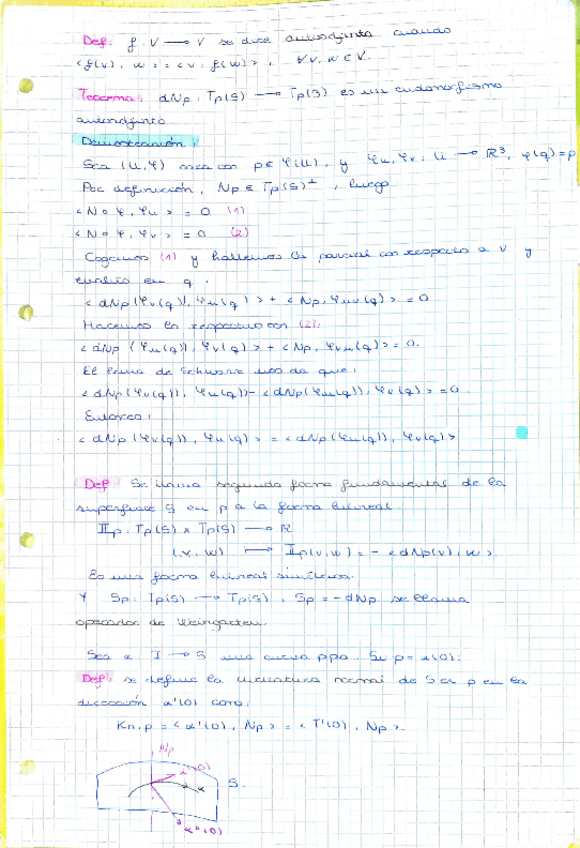 Def: f: V ⟶ V se dice autoadjunta cuando
<f(v), w> = <v, f(w)>, ∀v, w ∈ V.
Teorema: dNp : Tp(S) ⟶ Tp(S) es un endomorfismo
autoadjunto.
Demostración:
Sea (U, φ) carta con p ∈ φ(U), y φu, φv: U ⟶ R³, φ(q) = p
Por definición, Np ∈ Tp(S)⊥, luego
<N∘φ, φu> = 0 (1)
<N∘φ, φv> = 0 (2)
Cogemos (1) y hallemos la parcial con respecto a v y
en q.
<dNp(φv(q)), φu(q)> + <Np, φuv(q)> = 0
Hacemos lo con (2):
<dNp(φu(q)), φv(q)> + <Np, φvu(q)> = 0.
El lema de Schwarz nos da que:
<dNp(φv(q)), φu(q)> - <dNp(φu(q)), φv(q)> = 0
Entonces:
<dNp(φv(q)), φu(q)> = <dNp(φu(q)), φv(q)>
Def Se llama segunda forma fundamental de la
superficie S en p a la forma bilineal.
IIp: Tp(S) x Tp(S) ⟶ R
(v, w) ⟼ IIp(v, w) = - <dNp(v), w>
Es una forma bilineal simétrica.
Y Sp: Tp(S) ⟶ Tp(S), Sp = -dNp se llama
operador de Weingarten.
Sea α I ⟶ S una curva ppa. Si p = α(0):
Def: se define la curvatura normal de S en p en la
dirección α'(0) como:
Kn,p = <α''(0), Np> = <T'(0), Np>.
Np
α'(0)
α
S.
α''(0)